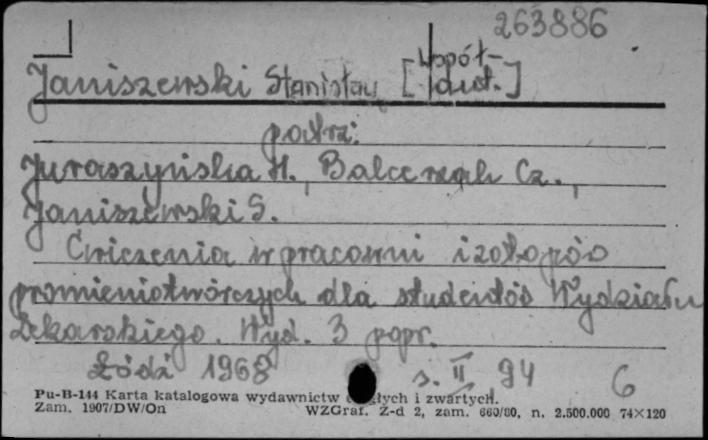 263886
Janiszewski Stanisław [Współ-
aut.]
patrz:
Juraszyńska H., Balcerzak Cz.,
Janiszewski S.
Ćwiczenia w pracowni izotopów
promieniotwórczych dla studentów Wydziału
Lekarskiego. Wyd. 3 popr.
Łódź 1968 s. II 94 6
Pu-B-144 Karta katalogowa wydawnictw ciągłych i zwartych.
Zam. 1907/DW/On WZGraf. Z-d 2, zam. 660/80, n. 2.500.000 74×120